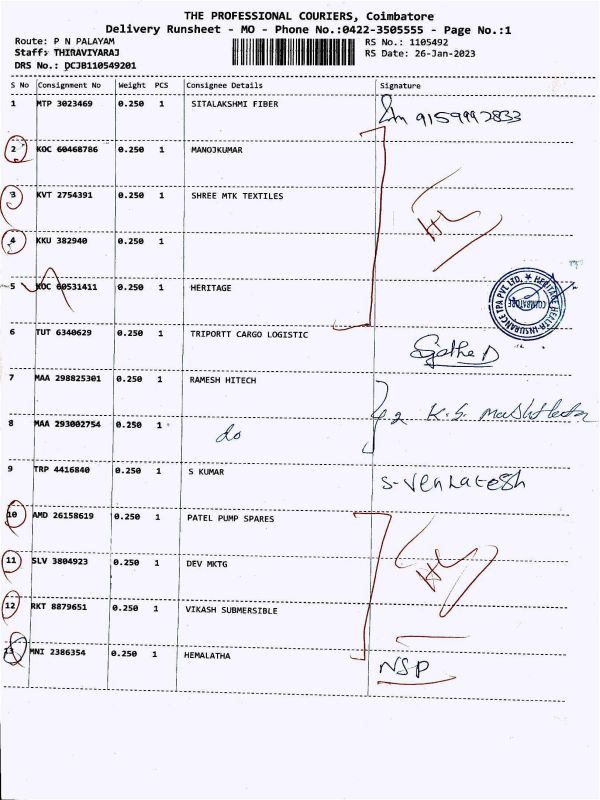 THE PROFESSIONAL COURIERS, Coimbatore
Delivery Runsheet - MO - Phone No.:0422-3505555 - Page No.:1
Route: P N PALAYAM RS No.: 1105492
Staff: THIRAVIYARAJ RS Date: 26-Jan-2023
DRS No.: DCJB110549201
S No Consignment No Weight PCS Consignee Details Signature
1 MTP 3023469 0.250 1 SITALAKSHMI FIBER 9159992833
2 KOC 60468786 0.250 1 MANOJKUMAR
3 KVT 2754391 0.250 1 SHREE MTK TEXTILES
4 KKU 382940 0.250 1
5 KOC 60531411 0.250 1 HERITAGE HERITAGE HEALTH INSURANCE TPA PVT LTD. COIMBATORE
6 TUT 6340629 0.250 1 TRIPORTT CARGO LOGISTIC
7 MAA 298825301 0.250 1 RAMESH HITECH
8 MAA 293002754 0.250 1 do K.S.
9 TRP 4416840 0.250 1 S KUMAR S-Venkatesh
10 AMD 26158619 0.250 1 PATEL PUMP SPARES
11 SLV 3804923 0.250 1 DEV MKTG
12 RKT 8879651 0.250 1 VIKASH SUBMERSIBLE
13 MNI 2386354 0.250 1 HEMALATHA NSP